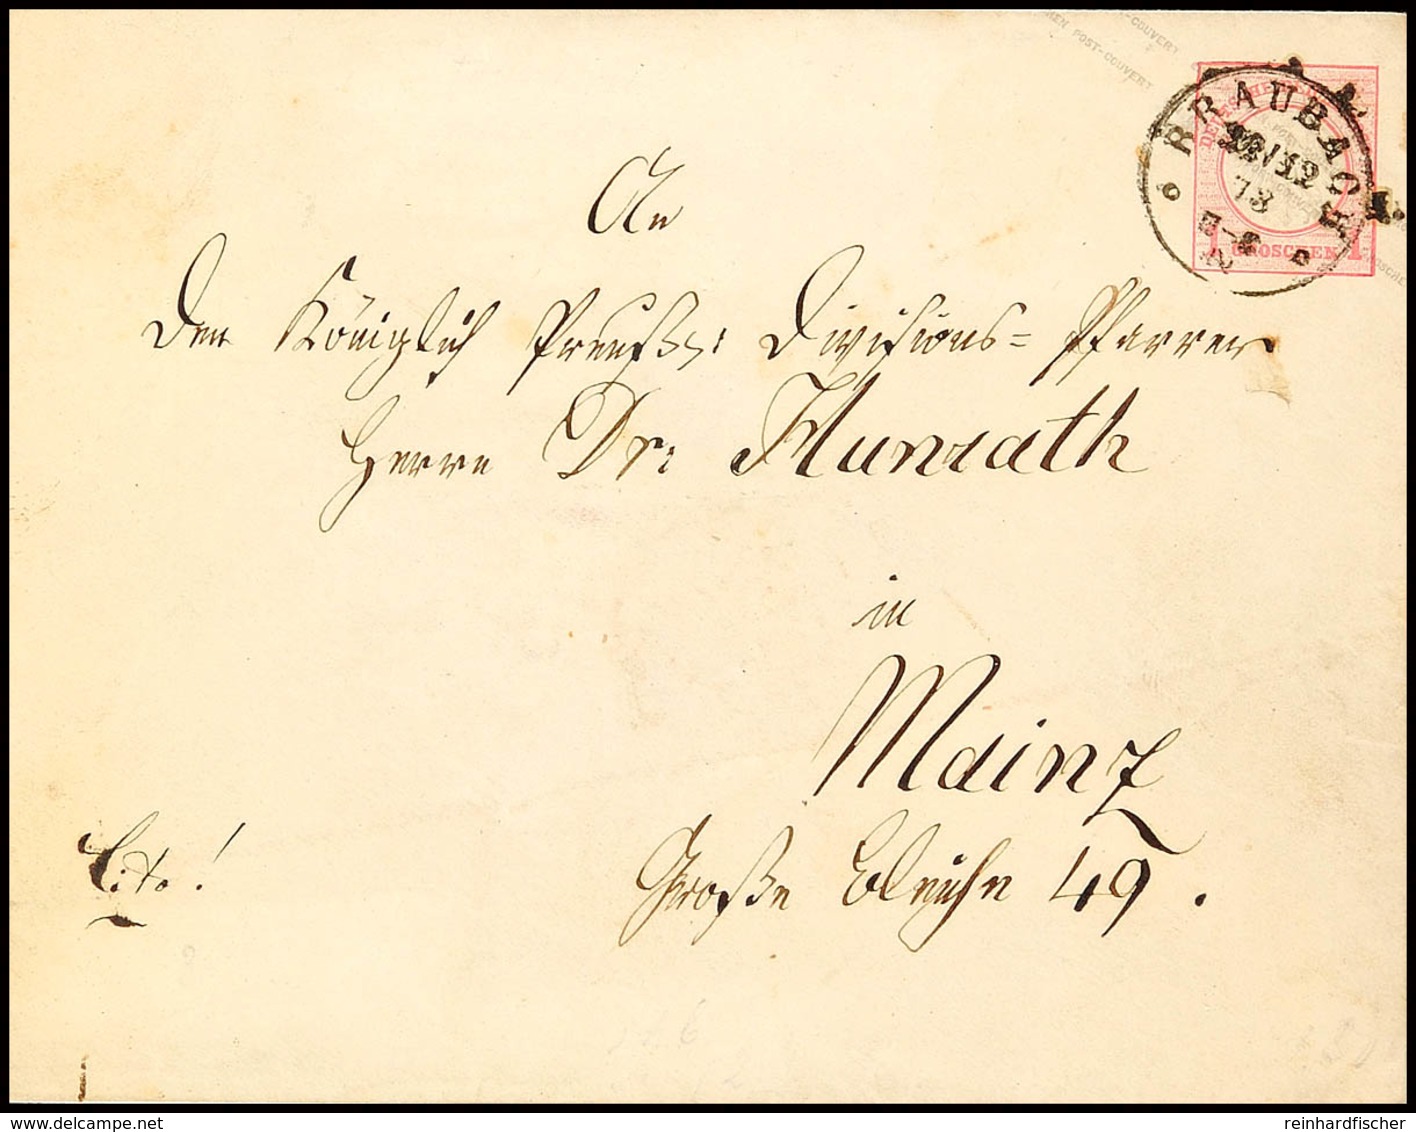 POST-COUVERT
POST-COUVERT
BRAUBACH
12
73
1 GROSCHEN 1
An
den Königlich Preuß: Divisions= Pfarrer
Herrn Dr: Hunrath
in
Mainz
Cito!
Große Bleiche 49.
delcampe.net
reinhardfischer